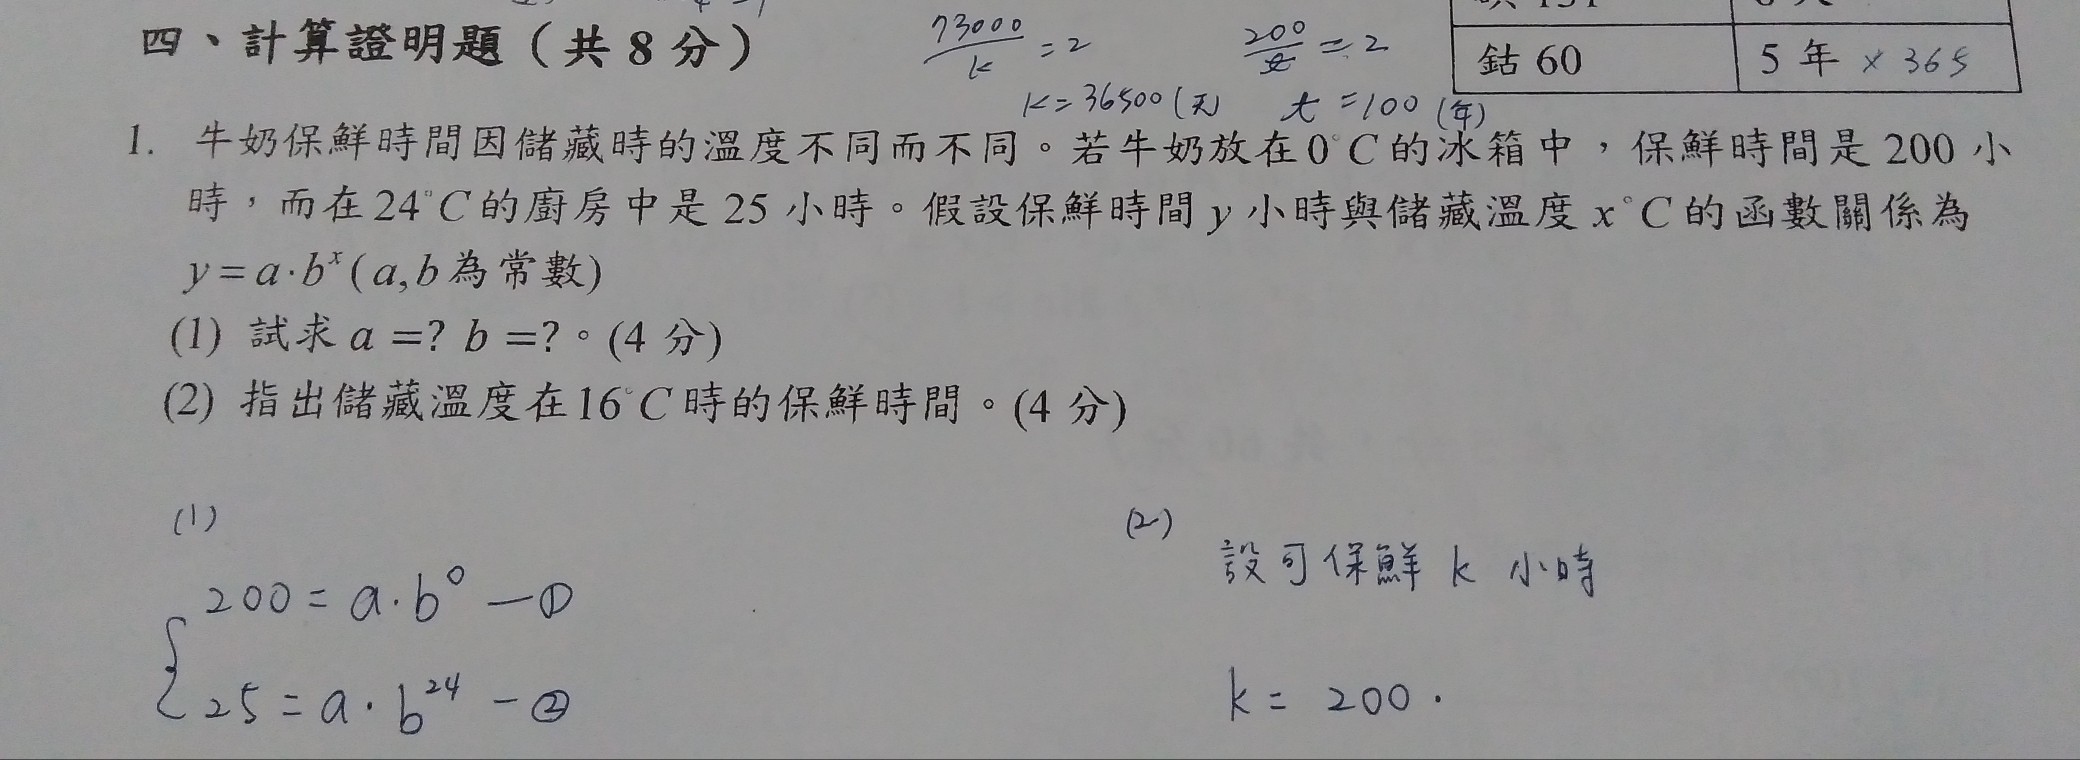 四、計算證明題（共 8 分）
73000/k = 2
k = 36500 (天)
200/t = 2
t = 100 (年)
鈷 60
5 年 × 365
1. 牛奶保鮮時間因儲藏時的溫度不同而不同。若牛奶放在0°C的冰箱中，保鮮時間是 200 小
時，而在24°C的廚房中是 25 小時。假設保鮮時間 y 小時與儲藏溫度 x°C 的函數關係為
y=a·bˣ (a,b為常數)
(1) 試求 a =? b =?。(4 分)
(2) 指出儲藏溫度在16°C時的保鮮時間。(4 分)
(1)
200 = a·b⁰ —①
25 = a·b²⁴ —②
(2)
設可保鮮 k 小時
k = 200 ·